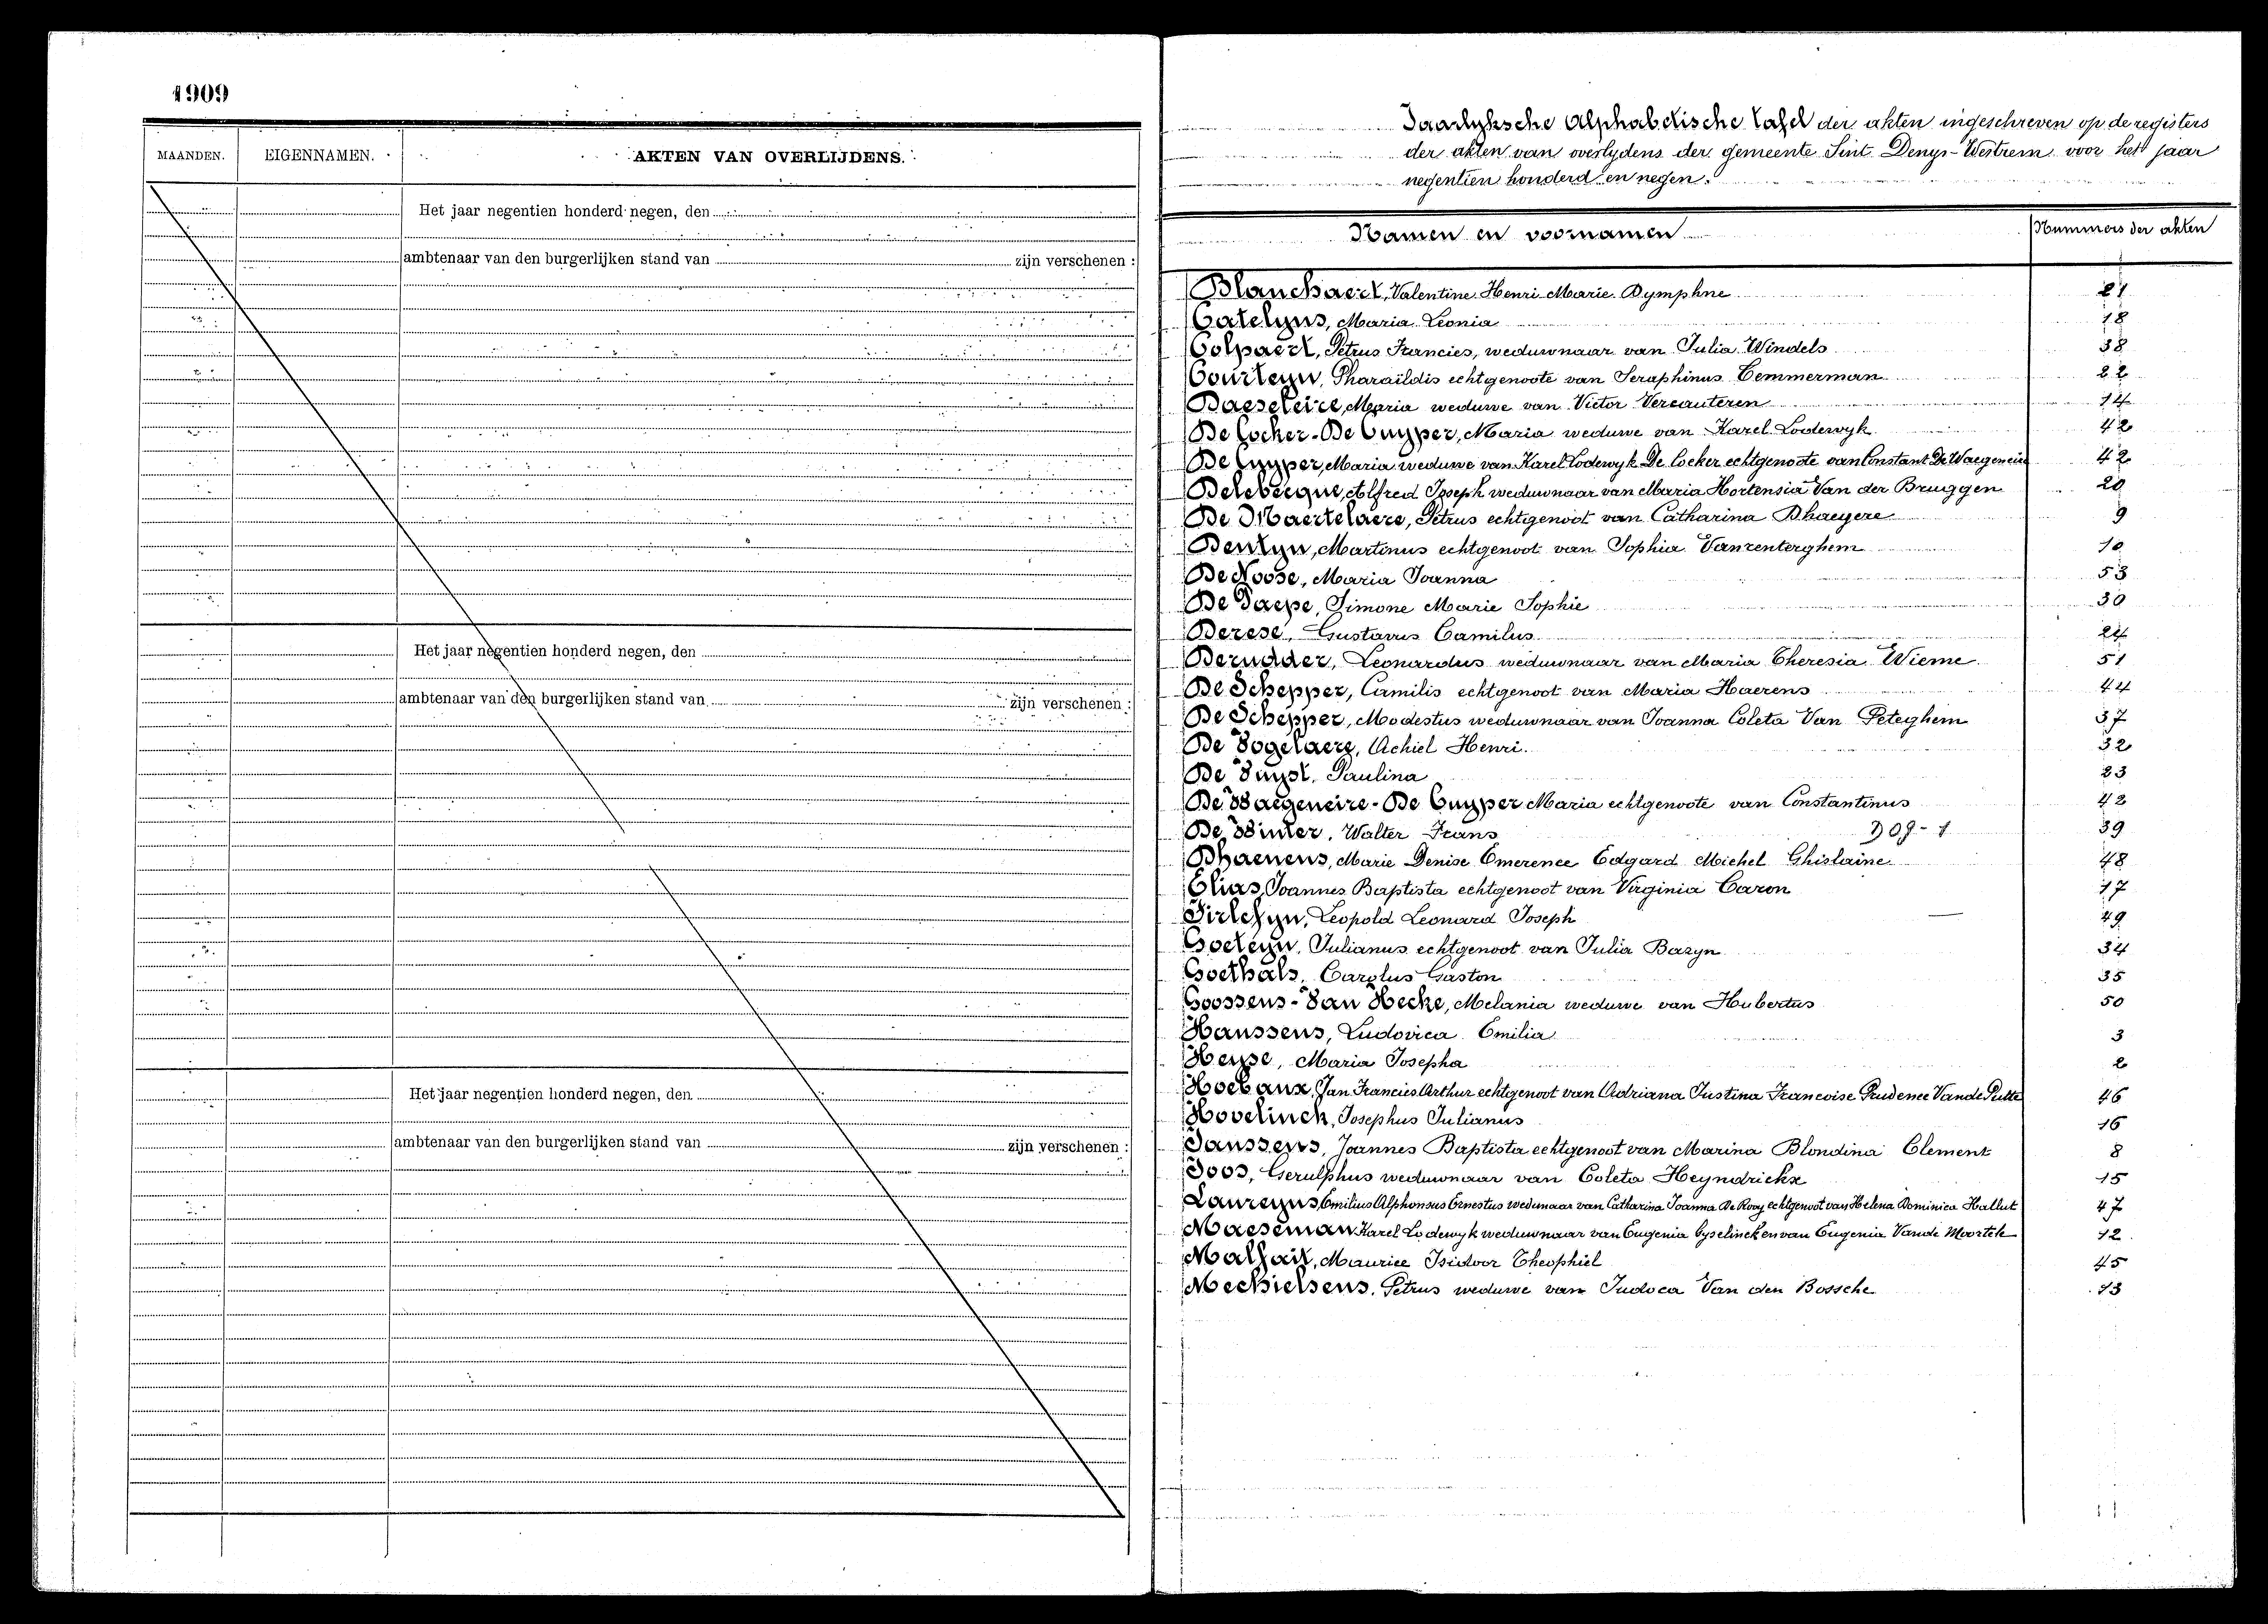 1909
MAANDEN.
EIGENNAMEN.
AKTEN VAN OVERLIJDENS.
Het jaar negentien honderd negen, den
ambtenaar van den burgerlijken stand van zijn verschenen :
Het jaar negentien honderd negen, den
ambtenaar van den burgerlijken stand van zijn verschenen :
Het jaar negentien honderd negen, den
ambtenaar van den burgerlijken stand van zijn verschenen :
Jaarlyksche Alphabetische Tafel der akten ingeschreven op de registers
der akten van overlydens der gemeente Sint Denys-Westrem voor het jaar
negentien honderd en negen.
Namen en voornamen Nummers der akten
Blanchaert, Valentine Henri Marie Dymphne 21
Catelyns, Maria Leonia 18
Colpaert, Petrus Francies, weduwnaar van Julia Windels 38
Courteyn, Pharaïldis echtgenoote van Seraphinus Temmerman 22
Daeseleire, Maria weduwe van Victor Vercauteren 14
De Cocker-De Cuyper, Maria weduwe van Karel Lodewyk 42
De Cuyper, Maria weduwe van Karel Lodewyk De Cocker echtgenoote van Constant De Waegeneire 42
Delebecque, Alfred Joseph weduwnaar van Maria Hortensia Van der Bruggen 20
De Maertelaere, Petrus echtgenoot van Catharina Dhaeyere 9
Dentyn, Martinus echtgenoot van Sophia Vanrenterghem 10
De Noose, Maria Joanna 53
De Paepe, Simone Marie Sophie 30
Derese, Gustavus Camilus 24
Derudder, Leonardus weduwnaar van Maria Theresia Wieme 51
De Schepper, Camilis echtgenoot van Maria Haerens 44
De Schepper, Modestus weduwnaar van Joanna Coleta Van Peteghem 37
De Vogelaere, Achiel Henri 32
De Vuyst, Paulina 23
De Waegeneire-De Cuyper Maria echtgenoote van Constantinus 42
De Winter, Walter Frans 309-1 39
Dhaenens, Marie Denise Emerence Edgard Michel Ghislaine 48
Elias, Joannes Baptista echtgenoot van Virginia Caron 17
Firlefyn, Leopold Leonard Joseph 49
Goeteyn, Julianus echtgenoot van Julia Bazyn 34
Goethals, Carolus Gaston 35
Goossens-Van Hecke, Melania weduwe van Hubertus 50
Hanssens, Ludovica Emilia 3
Heyse, Maria Josepha 2
Hoebanx, Jan Francies Arthur echtgenoot van Adriana Justina Francoise Prudence Vande Putte 46
Hovelinck, Josephus Julianus 16
Janssens, Joannes Baptista echtgenoot van Marina Blondina Clement 8
Joos, Gerulphus weduwnaar van Coleta Heyndrickx 15
Laureyns, Emilius Alphonsus Ernestus weduwnaar van Catharina Joanna De Rooy echtgenoot van Helena Dominica Hallut 47
Maeseman Karel Lodewyk weduwnaar van Eugenia Gyselinck en van Eugenia Vande Moortele 12
Malfait, Maurice Isidoor Theophiel 45
Mechielsens, Petrus weduwe van Judoca Van den Bossche 13